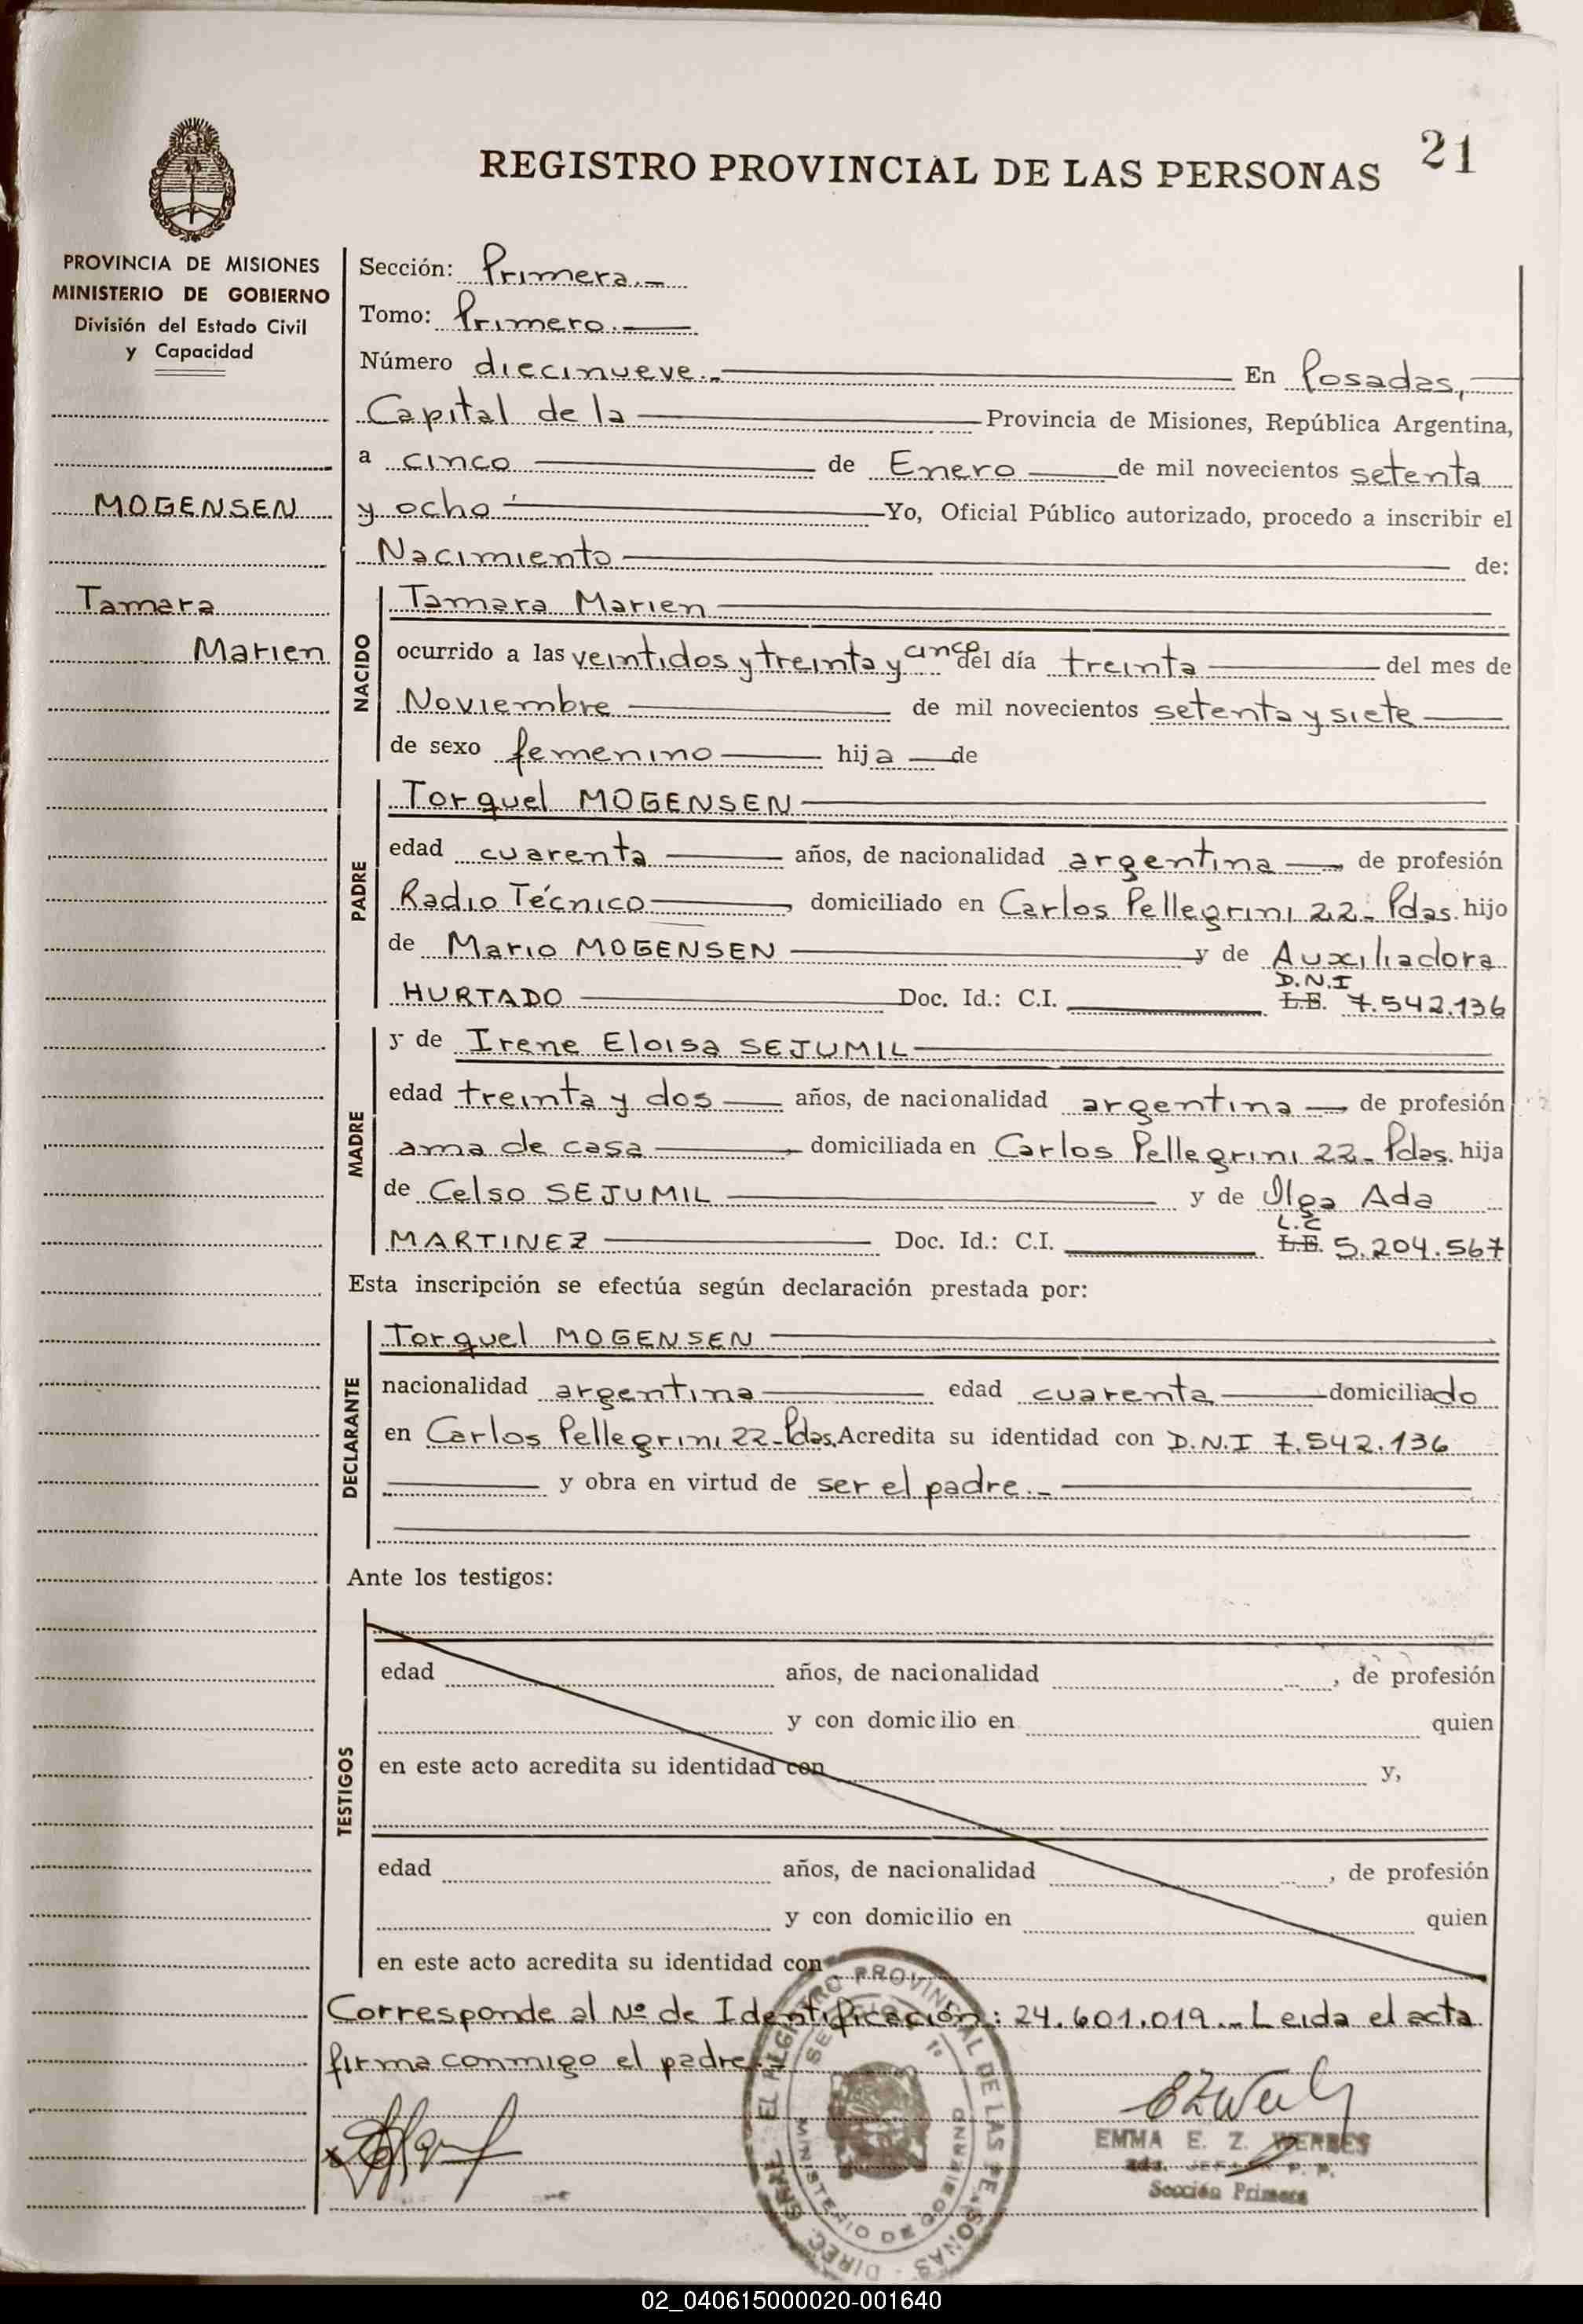 21
REGISTRO PROVINCIAL DE LAS PERSONAS
PROVINCIA DE MISIONES
MINISTERIO DE GOBIERNO
División del Estado Civil
y Capacidad
MOGENSEN
Tamara
Marien
Sección: Primera.-
Tomo: Primero.
Número diecinueve.- En Posadas,
Capital de la Provincia de Misiones, República Argentina,
a cinco de Enero de mil novecientos setenta
y ocho Yo, Oficial Público autorizado, procedo a inscribir el
Nacimiento de:
NACIDO
Tamara Marien
ocurrido a las veintidos y treinta y cinco del día treinta del mes de
Noviembre de mil novecientos setenta y siete
de sexo femenino hija de
PADRE
Torquel MOGENSEN
edad cuarenta años, de nacionalidad argentina, de profesión
Radio Técnico, domiciliado en Carlos Pellegrini 22- Pdas. hijo
de Mario MOGENSEN y de Auxiliadora
D.N.I
HURTADO Doc. Id.: C.I. L.E. 7.542.136
MADRE
y de Irene Eloisa SEJUMIL
edad treinta y dos años, de nacionalidad argentina, de profesión
ama de casa, domiciliada en Carlos Pellegrini 22- Pdas. hija
de Celso SEJUMIL y de Olga Ada
L.C
MARTINEZ Doc. Id.: C.I. L.E. 5.204.567
Esta inscripción se efectúa según declaración prestada por:
DECLARANTE
Torquel MOGENSEN
nacionalidad argentina edad cuarenta domiciliado
en Carlos Pellegrini 22- Pdas. Acredita su identidad con D.N.I 7.542.136
y obra en virtud de ser el padre.-
Ante los testigos:
TESTIGOS
edad años, de nacionalidad , de profesión
y con domicilio en quien
en este acto acredita su identidad con y,
edad años, de nacionalidad , de profesión
y con domicilio en quien
en este acto acredita su identidad con
Corresponde al Nº de Identificación: 24.601.019.- Leida el acta
firma conmigo el padre.-
REGISTRO PROVINCIAL DE LAS PERSONAS
MINISTERIO DE GOBIERNO
EMMA E. Z. WERBES
Sección Primera
02_040615000020-001640